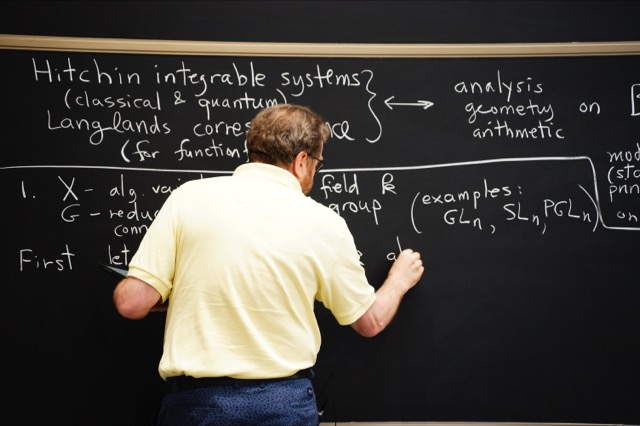 Hitchin integrable systems
(classical & quantum)
Langlands corres nce
(for function
analysis
geometry on
arithmetic
1. X - alg. vari field k
G - reduc group
conn
(examples:
GLn, SLn, PGLn)
mod
(sta
prin
on
First let a